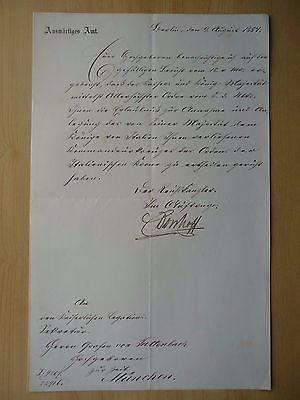 Auswärtiges Amt.
Berlin, den 9. August 1884.
Euer Hochgeboren benachrichtige auf den
gefälligen Bericht vom 18. v. Mts. er-
gebenst, daß des Kaisers und Königs Majestät
mittelst Allerhöchster Ordre vom
Ihnen die Erlaubniß zur Annahme und An-
legung des von Seiner Majestät dem
Könige von Italien Ihnen verliehenen
Kommandeurkreuzes des Orden der
Italienischen Krone zu ertheilen geruht
haben.
Der Reichskanzler.
Im Auftrage.
An
den Kaiserlichen Legations-
Sekretär
Herrn Grafen von Tattenbach
Hochgeboren
zur Zeit
München.